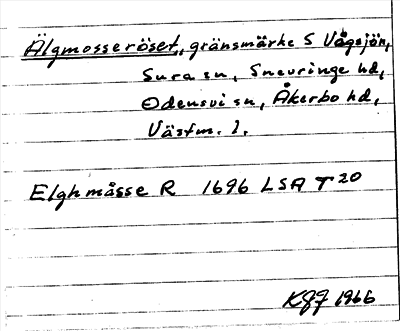 Älgmosseröset, gränsmärke S Vågsjön,
Sura sn, Snevringe hd,
Odensvi sn, Åkerbo hd,
Västm. l.
Elghmåsse R 1696 LSA T 20
KGJ 1966